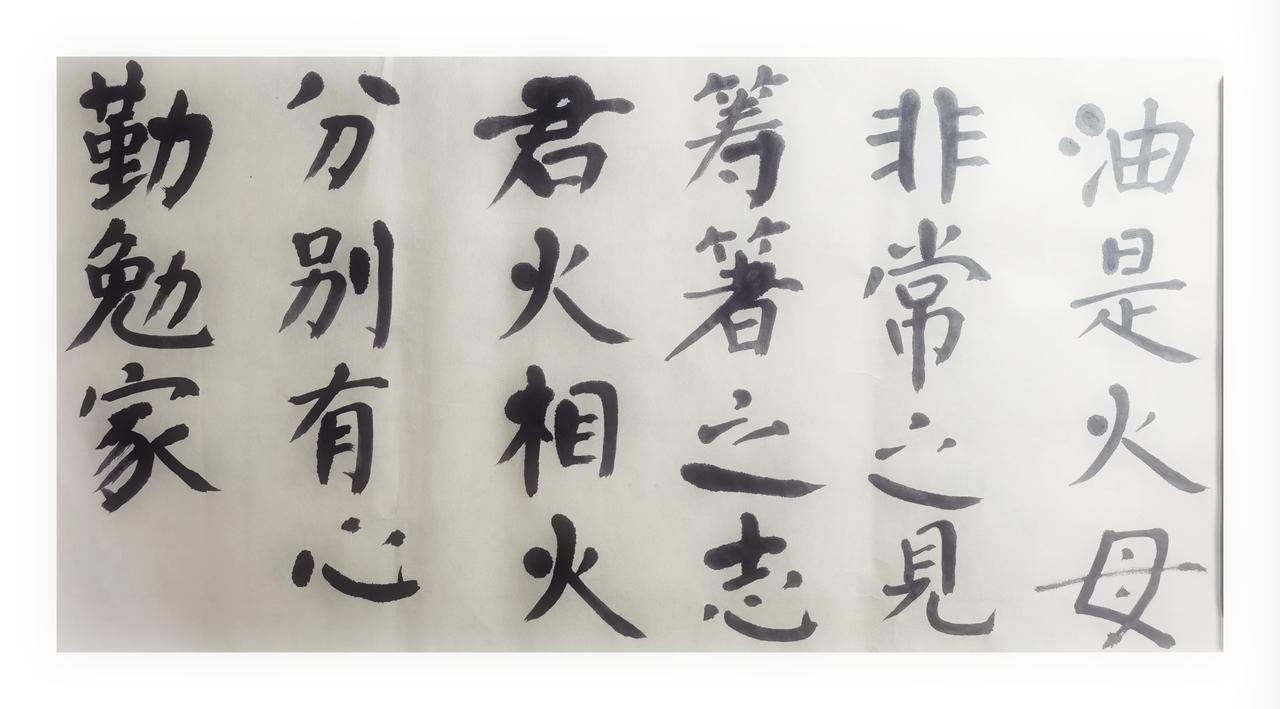 油是火母
非常之見
筹箸之志
君火相火
分别有心
勤勉家